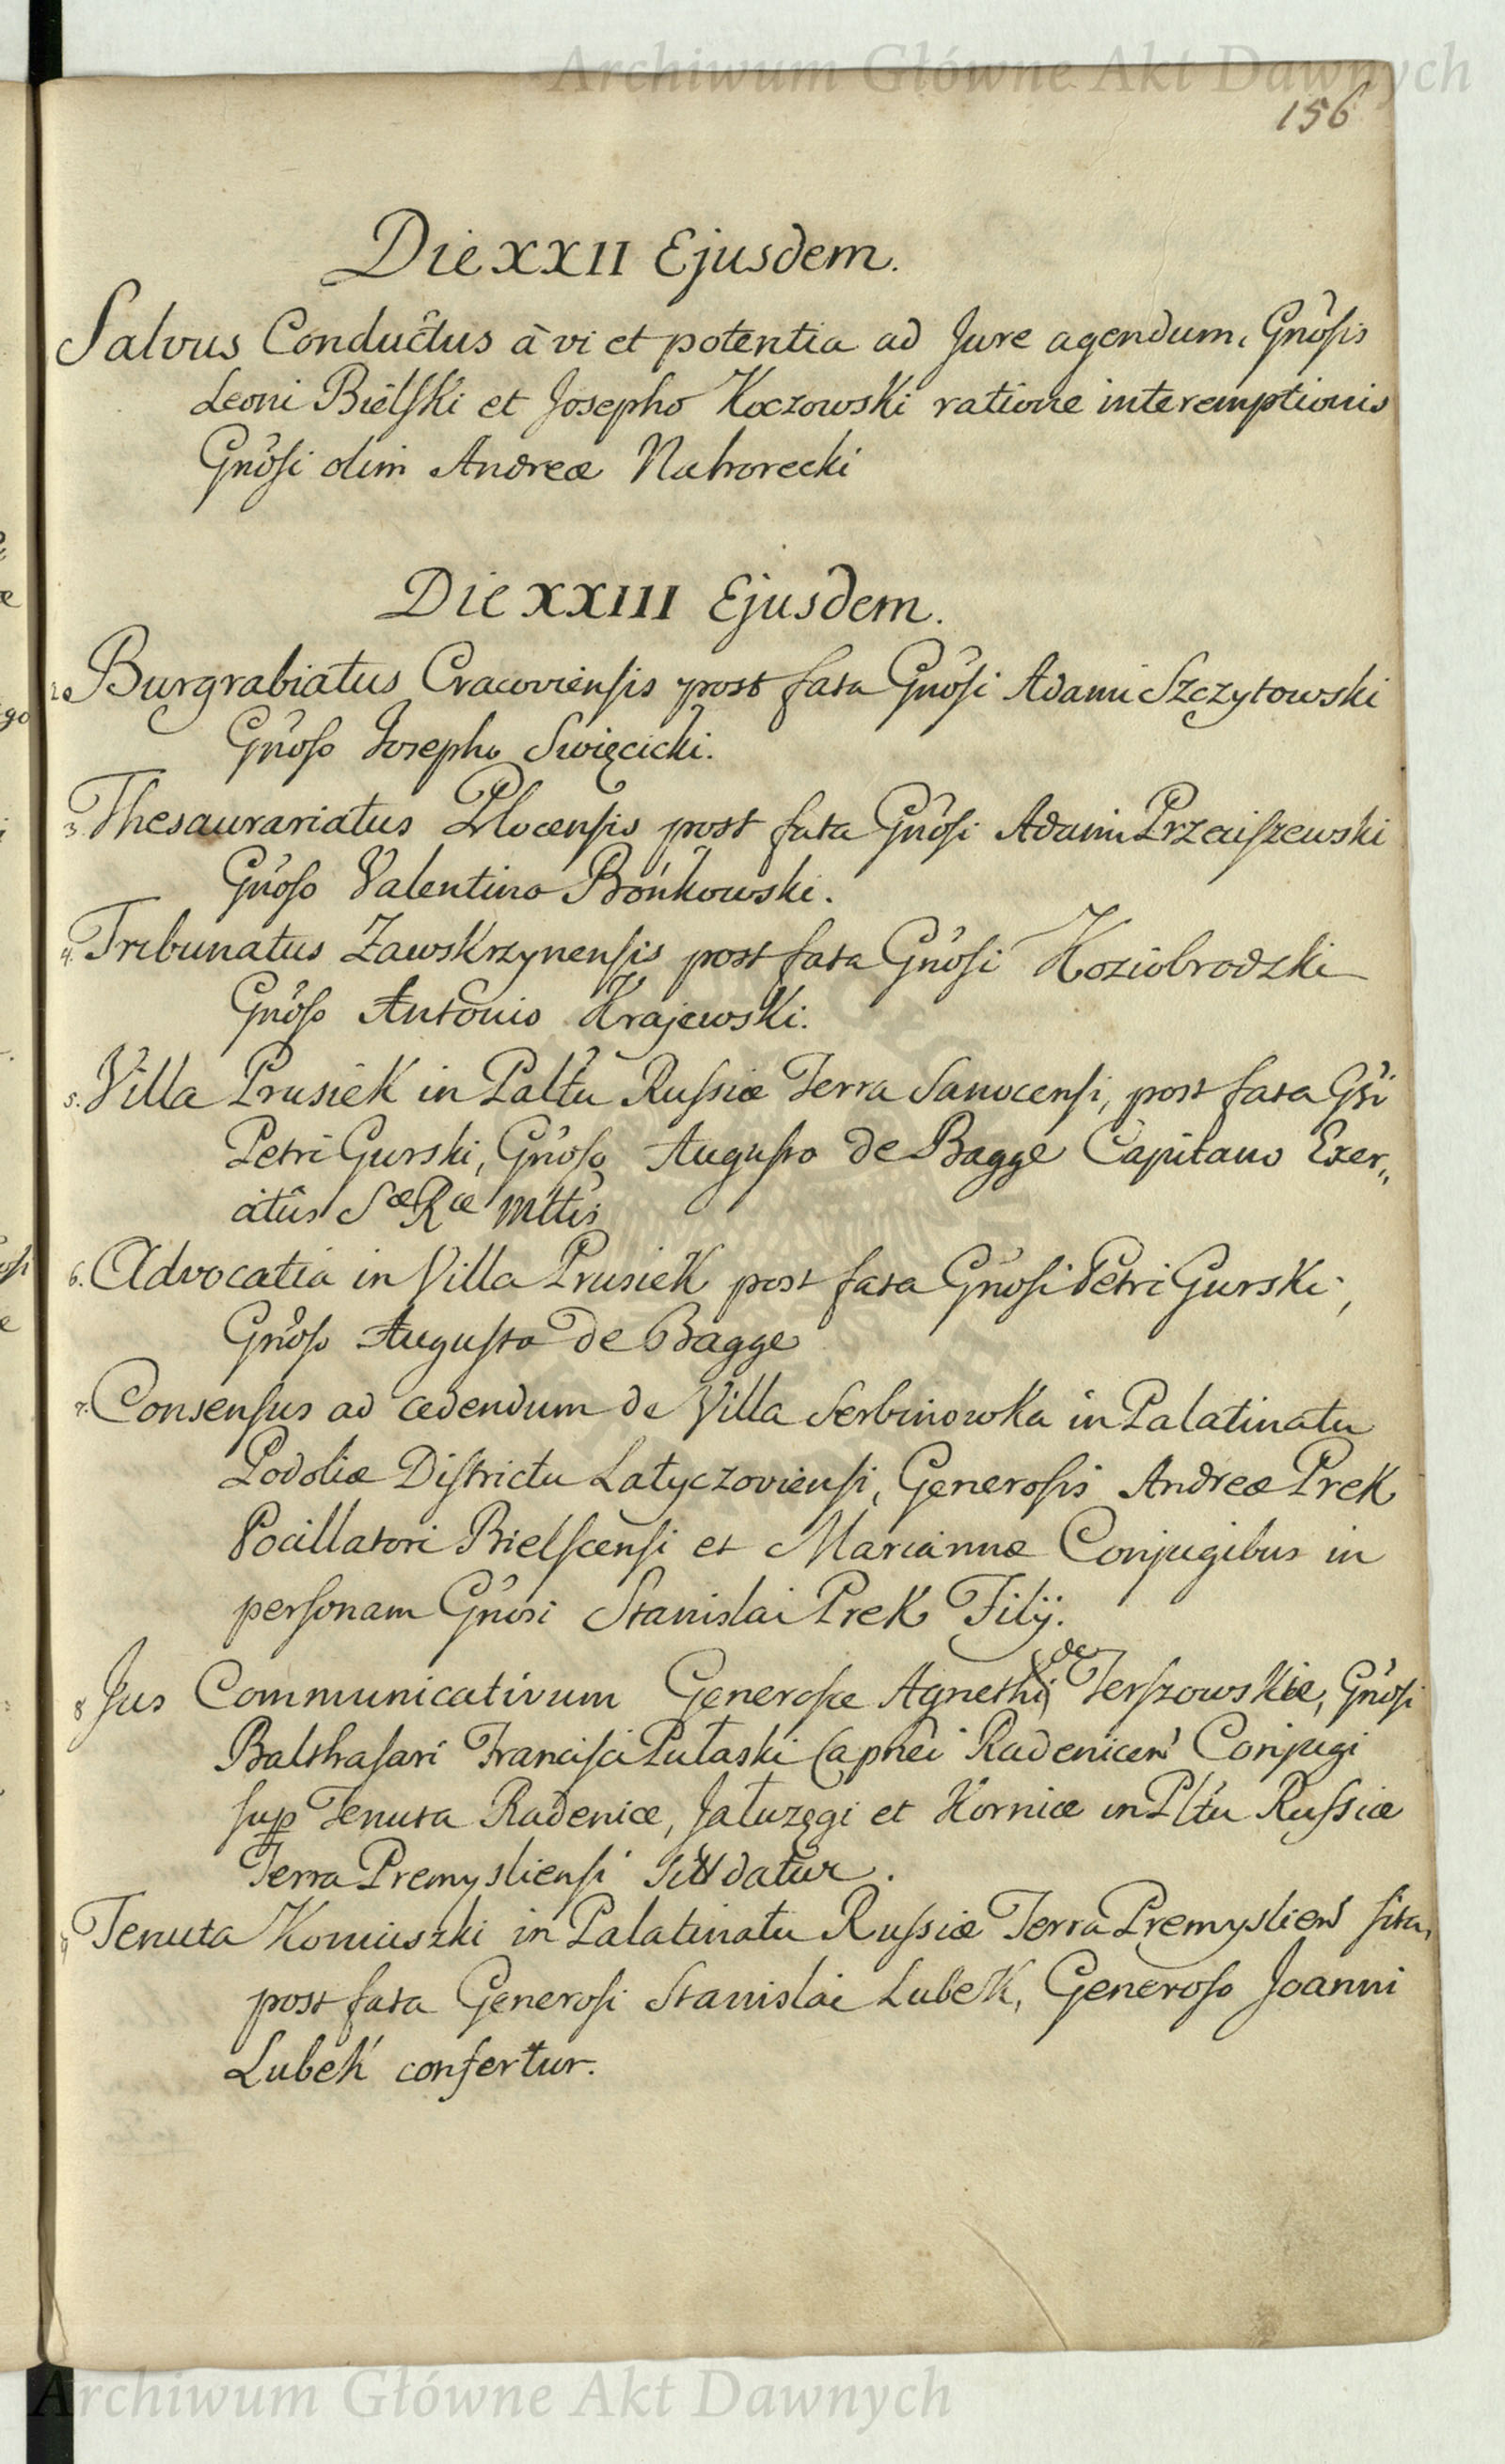 Archiwum Główne Akt Dawnych
156
Die XXII Ejusdem.
Salvus Conductus à vi et potentia ad Jure agendum, Gnôsis
Leoni Bielski et Josepho Koczowski ratione interemptionis
Gnôsi olim Andreæ Nabrorecki
Die XXIII Ejusdem.
Burgrabiatus Cracoviensis post fata Gnôsi Adami Szczytowski
Gnôso Josepho Swięcicki.
3. Thesaurariatus Plocensis post fata Gnôsi Adami Przeciszewski
Gnôso Valentino Bońkowski.
4. Tribunatus Zawskrzynensis post fata Gnôsi Koziobrodzki
Gnôso Antonio Krajewski.
5. Villa Prusiek in Palttu Russiæ Terra Sanocensi, post fata Gsi
Petri Gurski, Gnôso Augusto de Bagge Capitano Exer„
citûs Sæ Ræ Mttis
6. Advocatia in Villa Prusiek post fata Gnosi Petri Gurski,
Gnôso Augusto De Bagge
7. Consensus ad cedendum de Villa Serbinowka in Palatinatu
Podoliæ Districtu Latyczoviensi, Generosis Andreæ Prek
Pocillatori Bielscensi et Mariannæ Conjugibus in
personam Gnosi Stanislai Prek Filij.
8 Jus Communicativum Generosæ Agneti de Terszowskie, Gnôsi
Balthasari Francisci Pułaski Caphei Radenicen Conjugi
sup Tenuta Radenice, Jatuzęgi et Hornice in Pltu Russiæ
Terra Premysliensi datur.
9 Tenuta Komuszki in Palatinatu Russiæ Terra Premyslien sita,
post fata Generosi Stanislai Lubek, Generoso Joanni
Lubek confertur.
Archiwum Główne Akt Dawnych